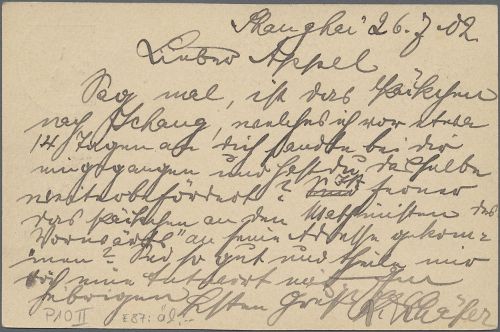 Shanghai 26.7.02
Lieber Appel
Sag mal, ist das Päckchen
nach Ichang, welches ich vor etwa
14 Tagen an dich sandte bei dir
eingegangen und hast du dasselbe
weiterbefördert? Ist ferner
das Päckchen an den Maschinisten des
"Vorwärts" an seine Adresse gekom-
men? Sei so gut und theile mir
eine Antwort mit
übrigen besten Gruß
P10II E87: öl.-